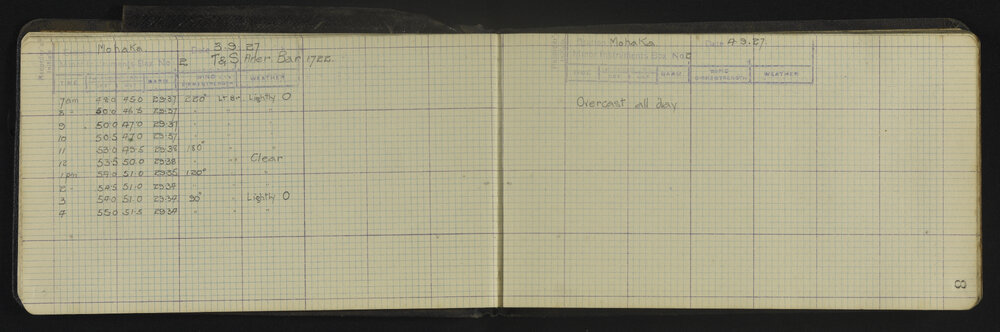 Mohaka Date 3.9.27
Minor Instruments Box No. 2 T&S Aner Bar 1722.
TIME BARO WIND DIRN & STRENGTH WEATHER
7am 48.0 45.0 29.37 220° Lt Br. Lightly O
8 " 50.0 46.5 29.37 " " "
9 50.0 47.0 29.37 " " "
10 50.5 47.0 29.37 " " "
11 53.0 49.5 29.38 180° " "
12 53.5 50.0 29.38 " " Clear
1pm 54.0 51.0 29.35 120° " "
2 " 54.5 51.0 29.34 " " "
3 54.0 51.0 29.34 90° " Lightly O
4 55.0 51.5 29.34 " " "
Station Mohaka Date 4.9.27.
Minor Instruments Box No. 2
TIME BARO WIND DIRN & STRENGTH WEATHER
Overcast all day
8